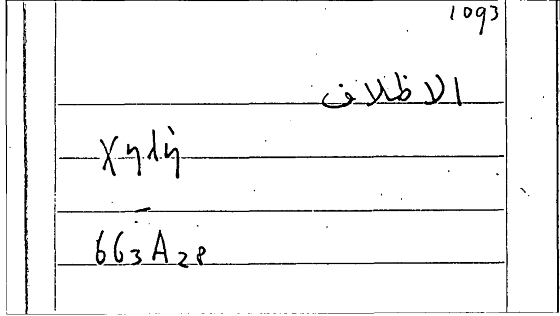 1093
الاظلاف
χηλή
663A28